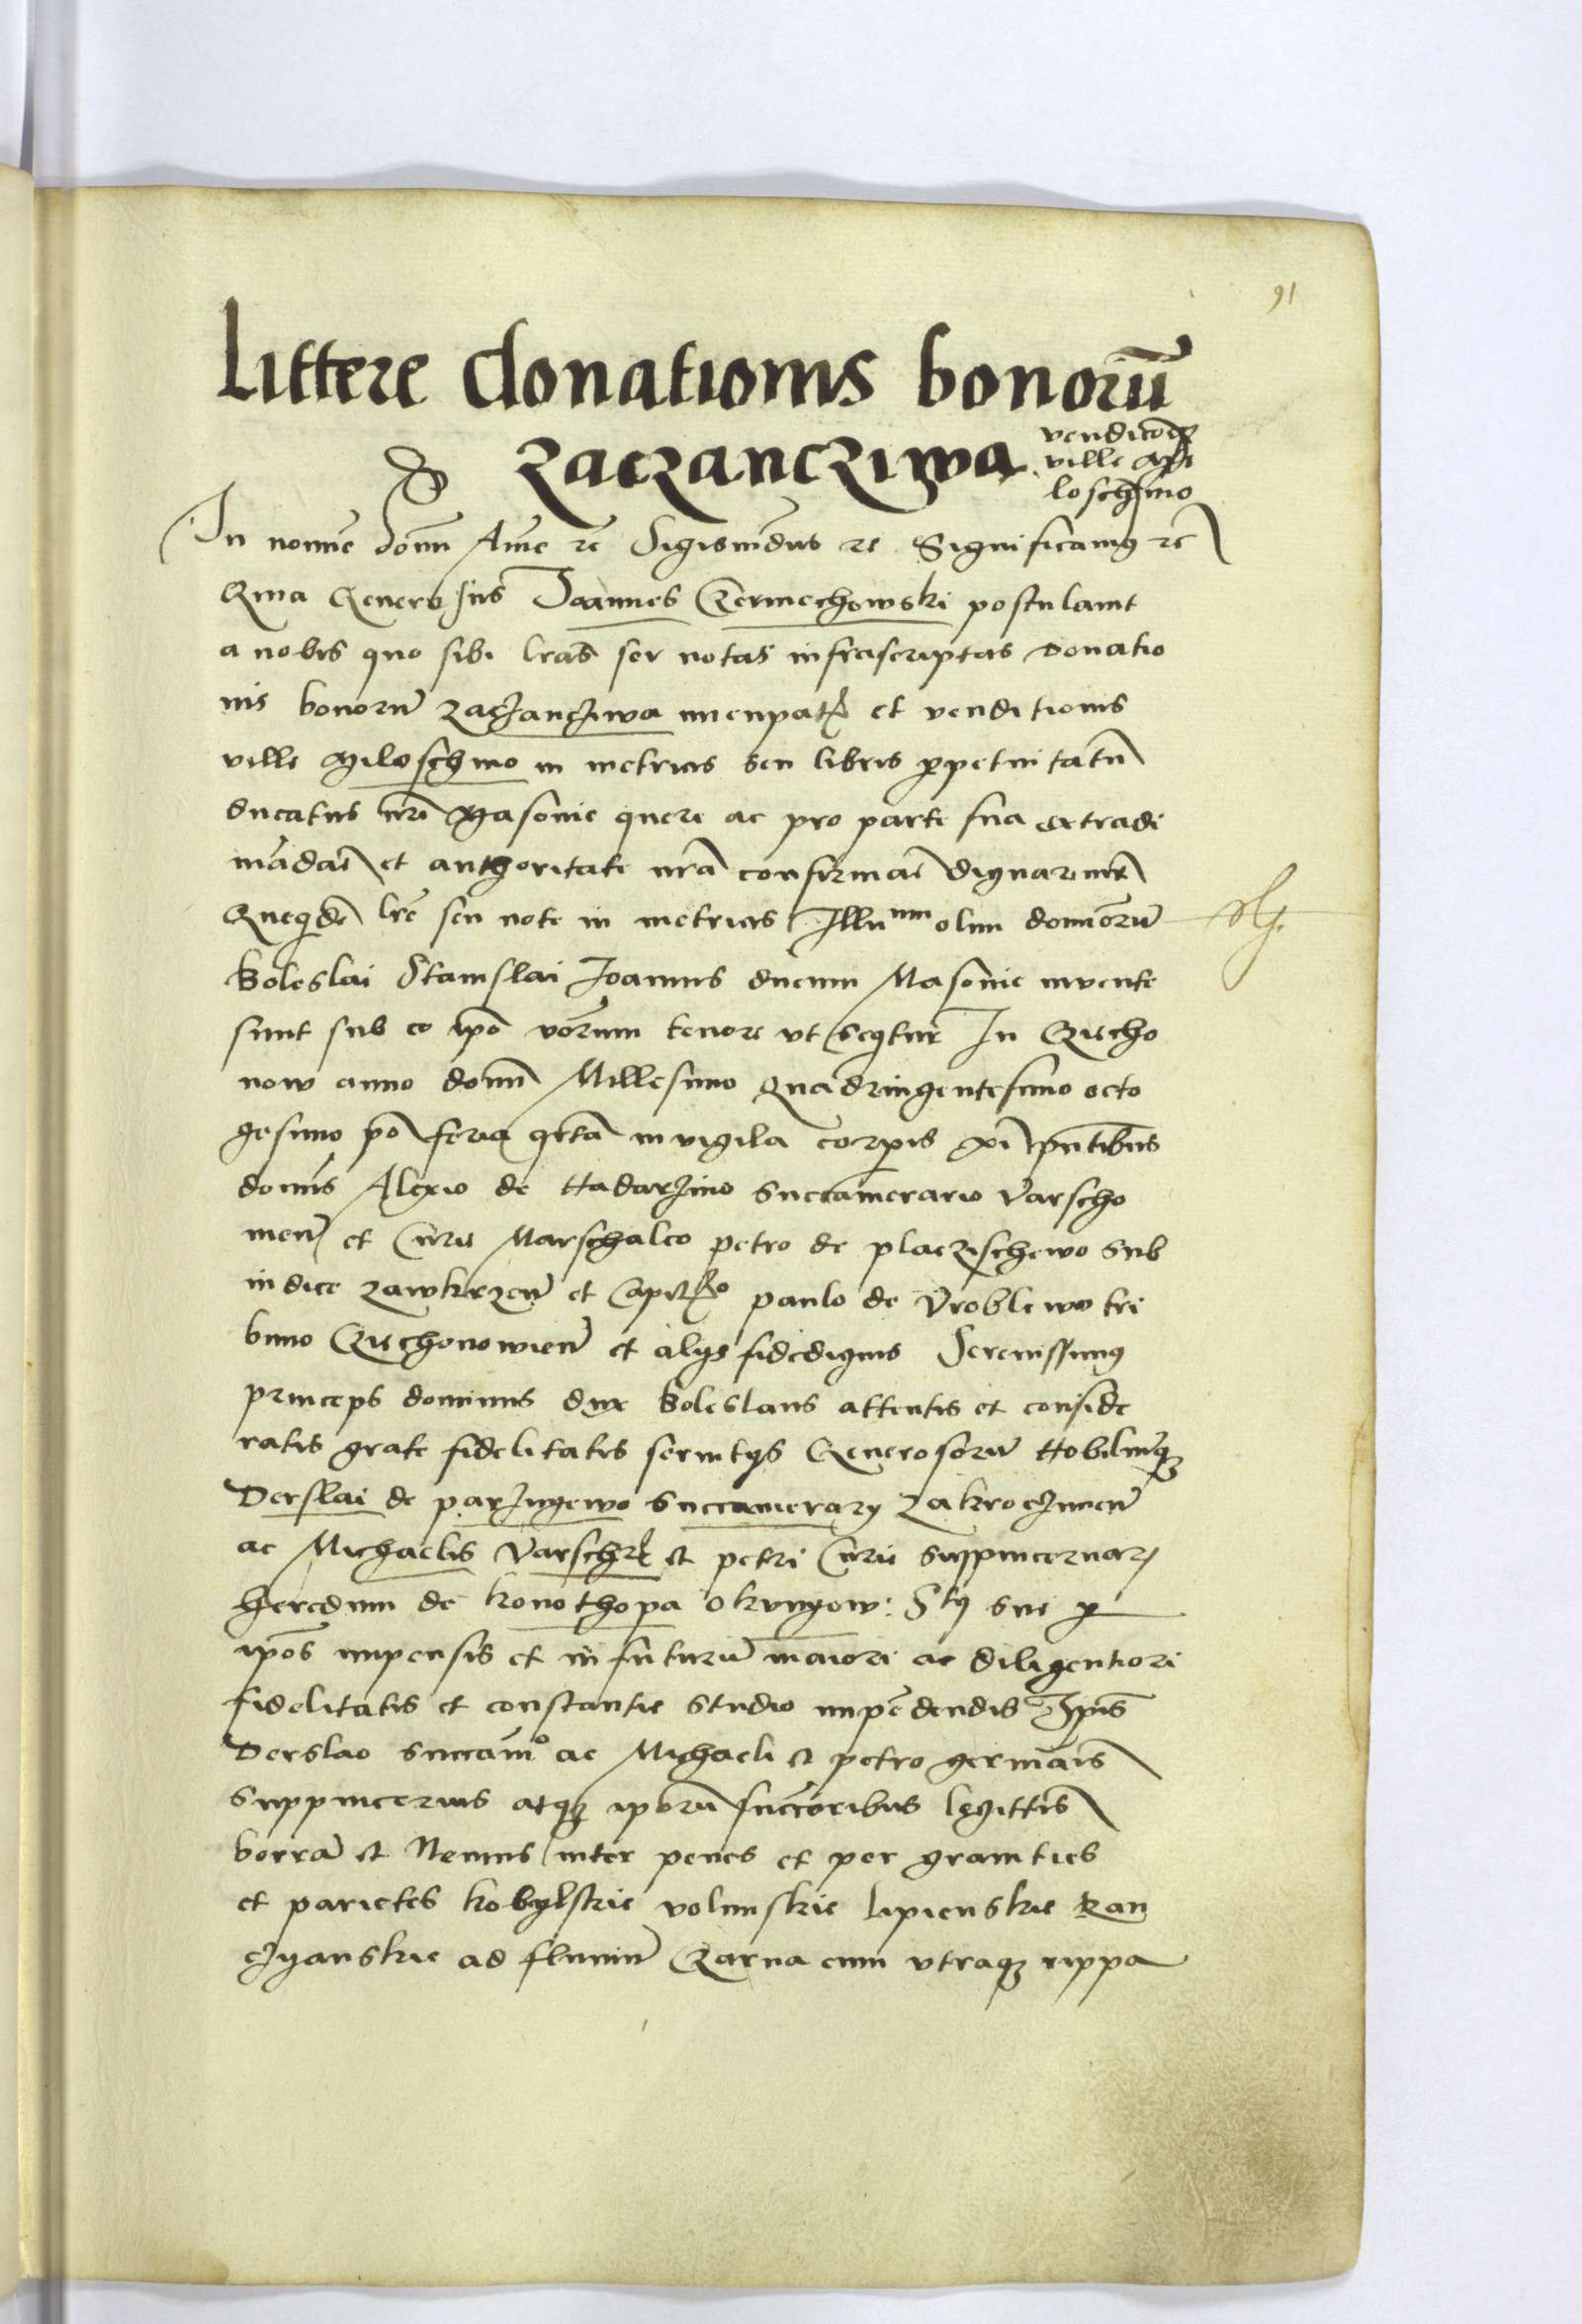 91
Littere donationis bonorū
zaczancziwa venditiōis
ville Mi
loschino
In nomīe domī Amē rc Sigismūdus rc Significamus rc
Quia Generosus Joannes Czermechowski postulavit
a nobis quo sibi lrās seu notas infrascriptas donatio
nis bonorū zaczancziwa nuncupat et venditionis
ville Miloschino in metricis seu libris perpetuitatū
ducatus nrī Masovie quere ac pro parte sua extradi
mādari et authoritate nrā confirmari dignaremur
Queqdē lrē seu note in metricis Illu^mm olim dominorū
Boleslai Stanislai Joannis ducum Masovie invente
sunt sub eo ipō verborum tenore ut seqtur In Czecho
now anno domī Millesimo Quadringentesimo octo
gesimo pō feria qrta in vigilia corpis xpi pntibus
domis Alexio de Nadarzino Succamerario Varscho
vien et Curie Marschalco petro de placzischewo Sub
iudice zawkrzen et Capit^o paulo de Vroblewo tri
buno Czechonowien et alijs fidedignis Serenissimus
princeps dominus dux Boleslaus attentis et conside
ratis grate fidelitatis servitijs Generosorū Nobiliūqz
Derslai de parzngewo Succamerarij zakroczimen
ac Michaelis Varsch et petri Curie suppincernar
heredum de konothopa okvnyow: Sty sue p
ipos impensis et in futurū maiori ac diligentiori
fidelitatis et constantie studio impēdendis Ipis
Derslao succam^o ac Michaeli et petro germāis
Suppincernis atqz ipōrū succoribus legittis
borrā et Nemus inter penes et per granities
et parietes kobylskie volunskie Lipienskie kan
czyanskie ad fluviū Czarna cum utraqz rippa